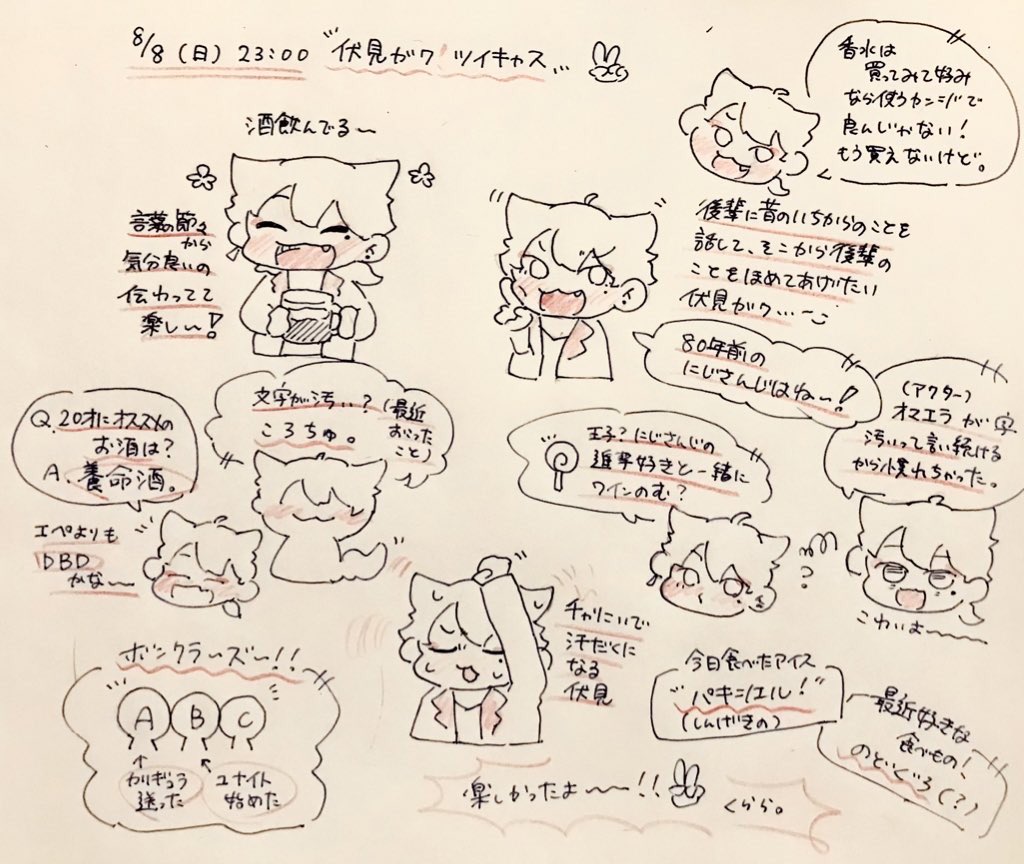 8/8（日）23:00 "伏見ガク！ツイキャス"
酒飲んでる〜
言葉の節々
から
気分良いの
伝わってて
楽しー！
香水は
買ってみて好み
なら使うカンジで
良んじゃない！
もう買えないけど。
後輩に昔のいちからのことを
話して、そこから後輩の
ことをほめてあげたい
伏見ガク…
80年前の
にじさんじはね〜！
(アクター)
オマエラが字
汚いって言い続ける
から慣れちゃった。
こわいよ〜〜〜
Q.20才にオススメの
お酒は？
A.養命酒。
文字が汚い？(最近
おこった
こと)
ころちゅ。
王子？にじさんじの
进平好きと一緒に
ワインのむ？
?
エペよりも
DBD
かな〜〜
チャリこいで
汗だくに
なる
伏見
ボンクラーズ〜!!
A B C
↑
かりぎゅう
送った
↖
ユナイト
始めた
今日食べたアイス
"パキシエル！"
(しんげきの)
最近好きな
食べもの！
のどぐろ(?)
楽しかったよ〜〜!!
くらら。